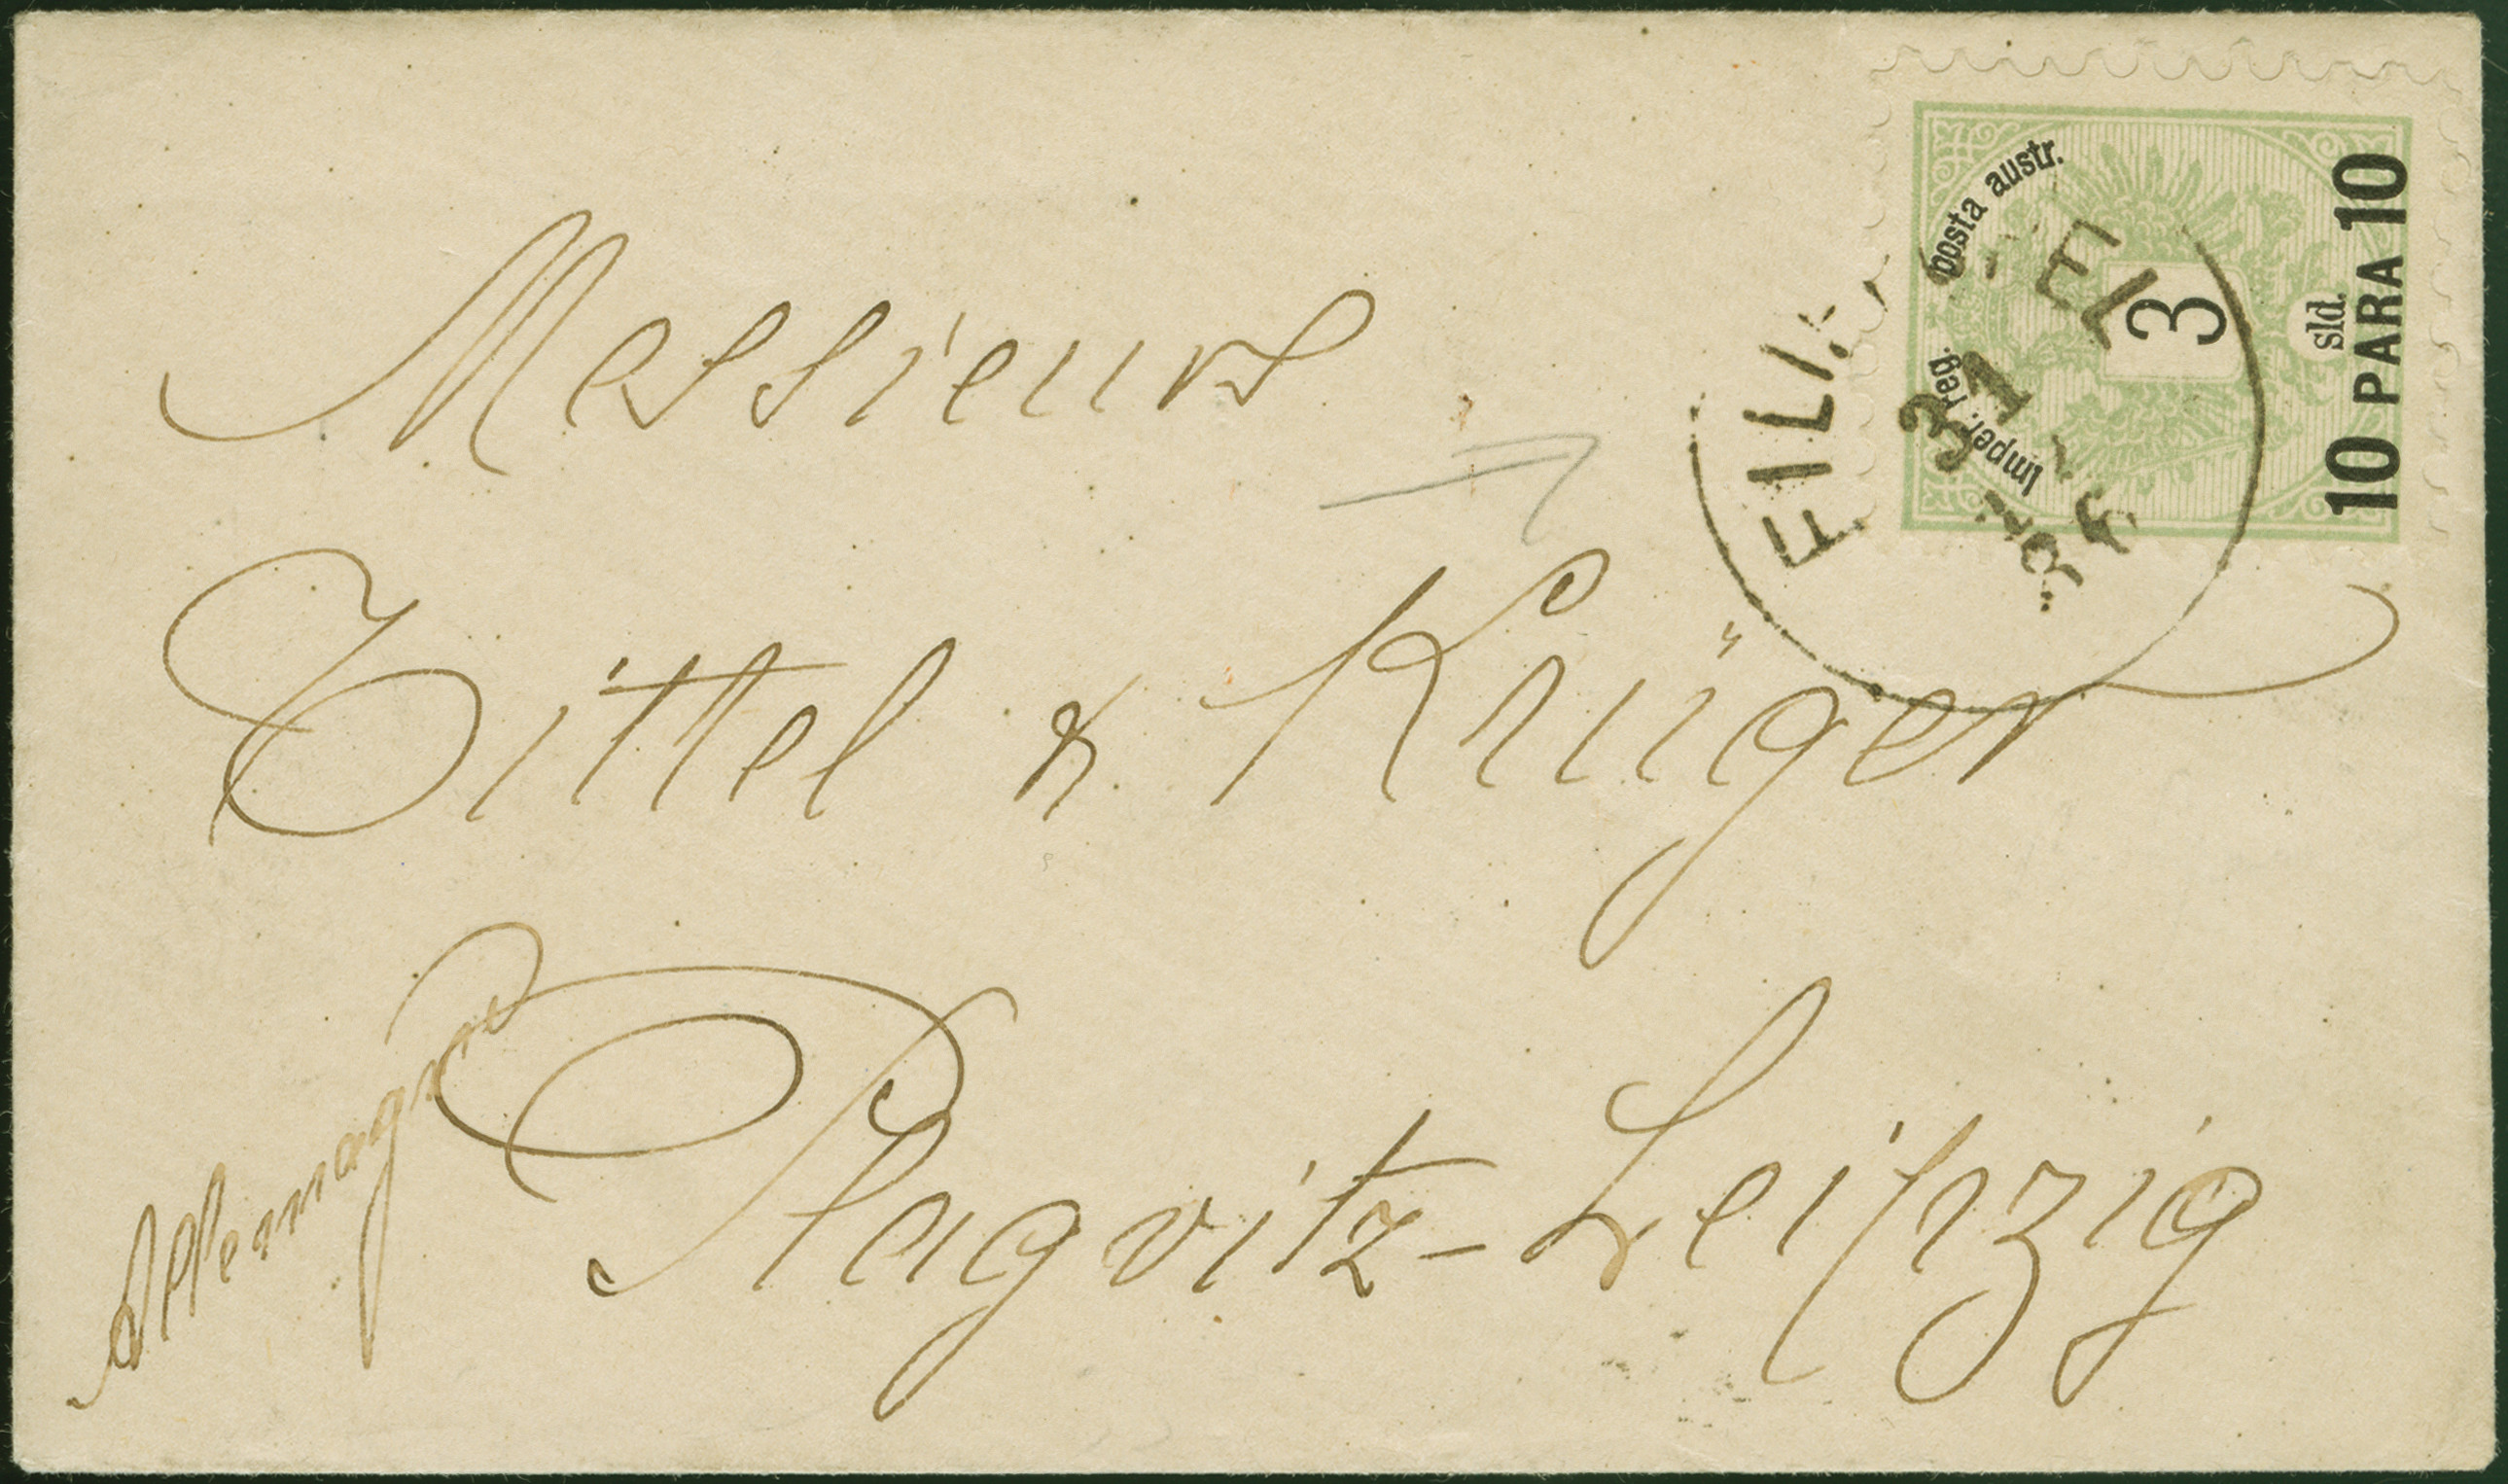 Imper. reg. posta austr.
3
sld.
10 PARA 10
31
Messieurs
Tittel & Krüger
Plagvitz-Leipzig
Allemagne